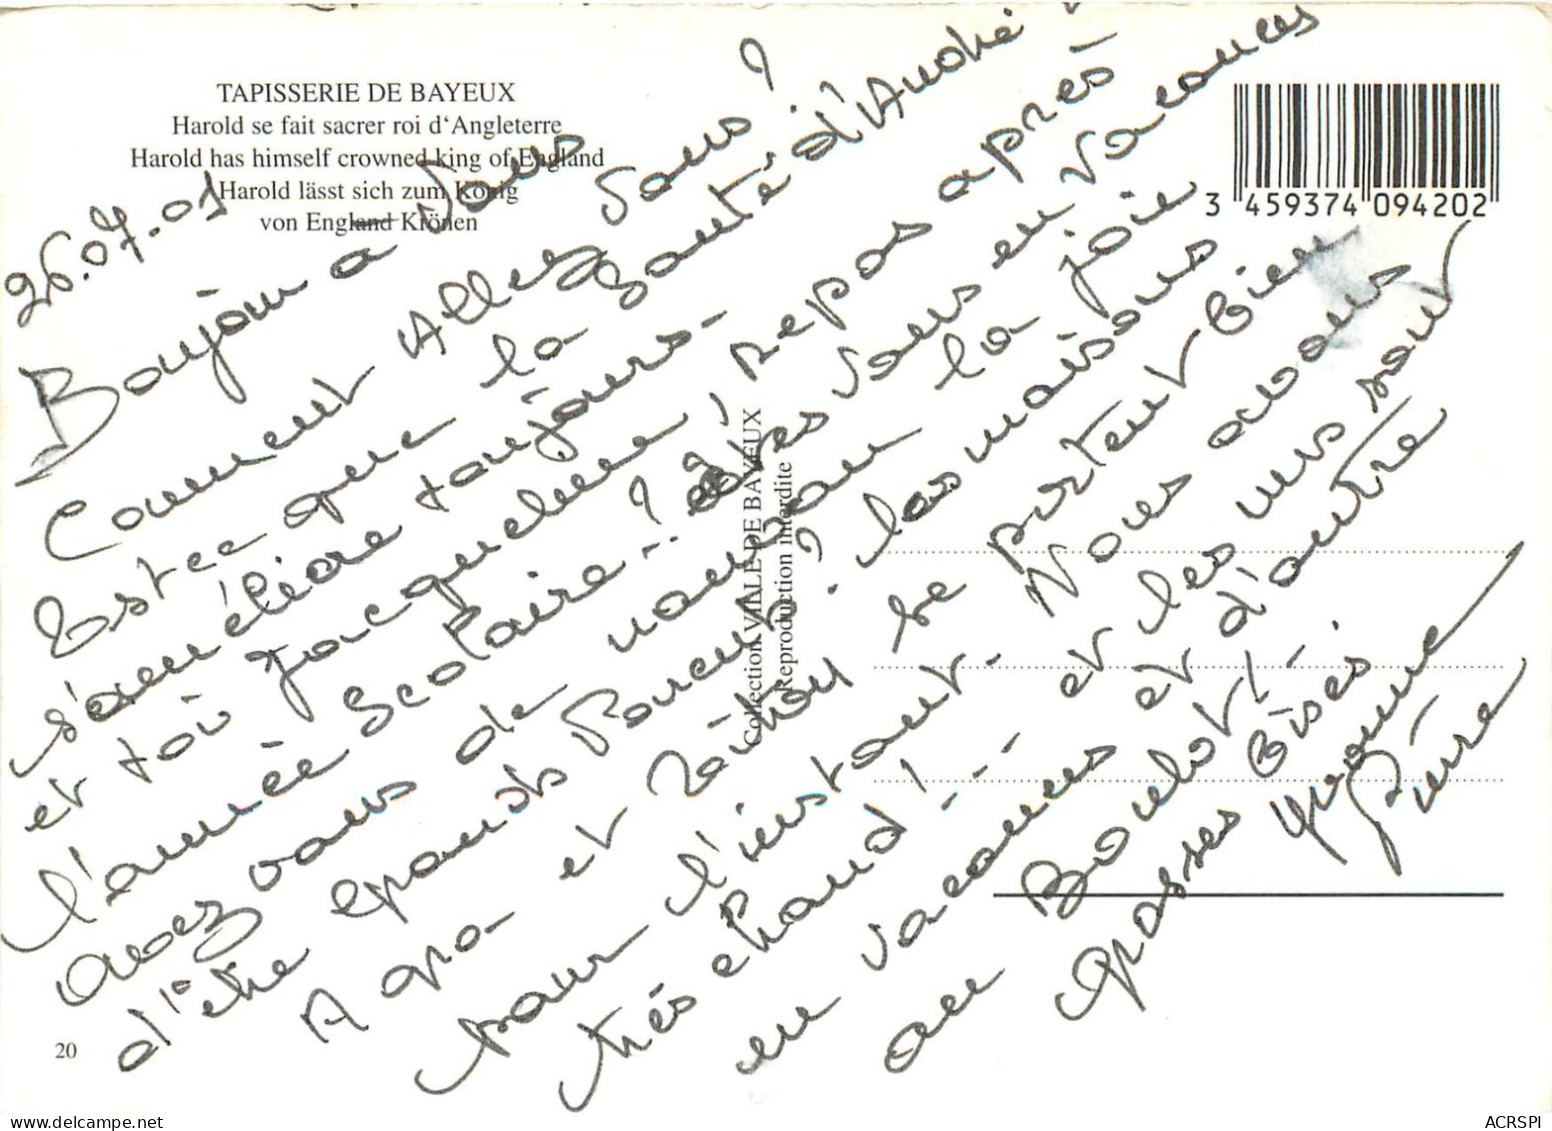 TAPISSERIE DE BAYEUX
Harold se fait sacrer roi d'Angleterre
Harold has himself crowned king of England
Harold lässt sich zum König
von England Krönen
3 459374 094202
26.07.01
Boujour a Vous
Comment Allez Vous?
Estce que la Santé d'André
s'améliore toujours-
et toi Jacqueline, repos après
l'année Scolaire! êtes Vous en Vacances
avez vous de nouveau la joie
d'être grands Parents? les maisons
A go et se portent bien
pour l'instant. Nous avons
très chaud! -- et les uns sont
en vacances et d'autre
au Boulot!
grosses Bises
Yvonne
Pierre
Collection VILLE DE BAYEUX
Reproduction interdite
20
ACRSPI